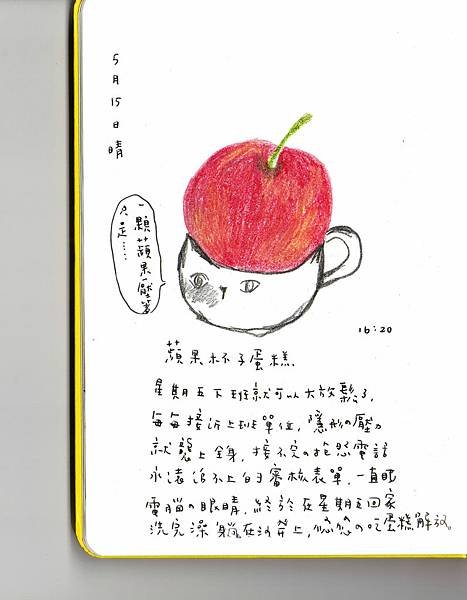 5月15日晴
一顆蘋果壓著
只是……
16:20
蘋果杯子蛋糕
星期五下班就可以大放鬆了,
每每接近上班單位,隱形の壓力
就襲上全身,接不完の抱怨電話
永遠追不上的審核表單,一直盯
電腦の眼睛,終於在星期五回家
洗完澡躺在沙發上,悠悠の吃蛋糕解放。